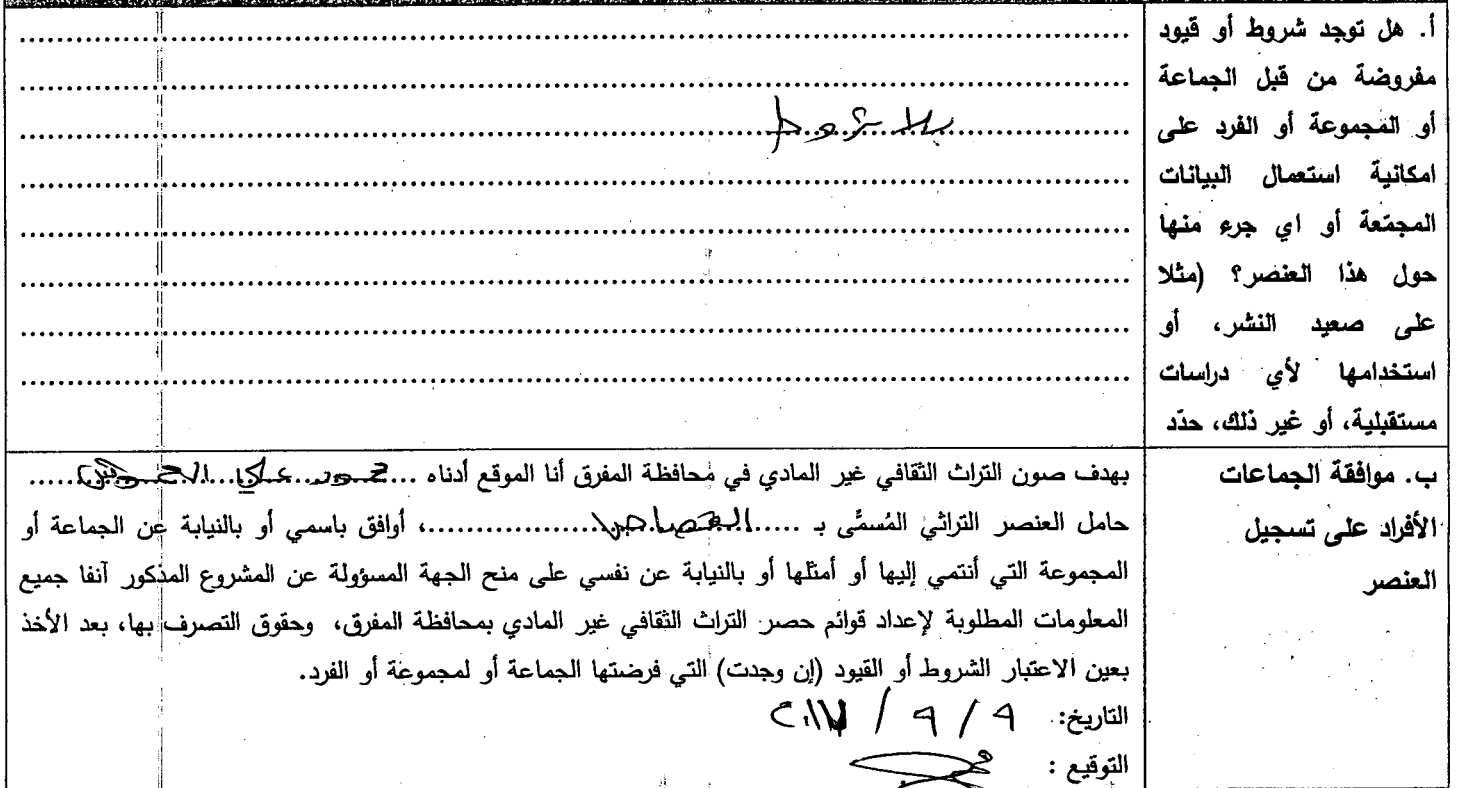 أ. هل توجد شروط أو قيود
مفروضة من قبل الجماعة
أو المجموعة أو الفرد على
امكانية استعمال البيانات
المجمّعة أو اي جرء منها
حول هذا العنصر؟ (مثلا
على صعيد النشر، أو
استخدامها لأي دراسات
مستقبلية، أو غير ذلك، حدّد
بلا شروط
ب. موافقة الجماعات
الأفراد على تسجيل
العنصر
بهدف صون التراث الثقافي غير المادي في محافظة المفرق أنا الموقع أدناه ... علي ...
حامل العنصر التراثي المُسمَّى بـ ..... ..................، أوافق باسمي أو بالنيابة عن الجماعة أو
المجموعة التي أنتمي إليها أو أمثلها أو بالنيابة عن نفسي على منح الجهة المسؤولة عن المشروع المذكور آنفا جميع
المعلومات المطلوبة لإعداد قوائم حصر التراث الثقافي غير المادي بمحافظة المفرق، وحقوق التصرف بها، بعد الأخذ
بعين الاعتبار الشروط أو القيود (إن وجدت) التي فرضتها الجماعة أو لمجموعة أو الفرد.
التاريخ: ٩ / ٩ / ٢٠١٧
التوقيع :